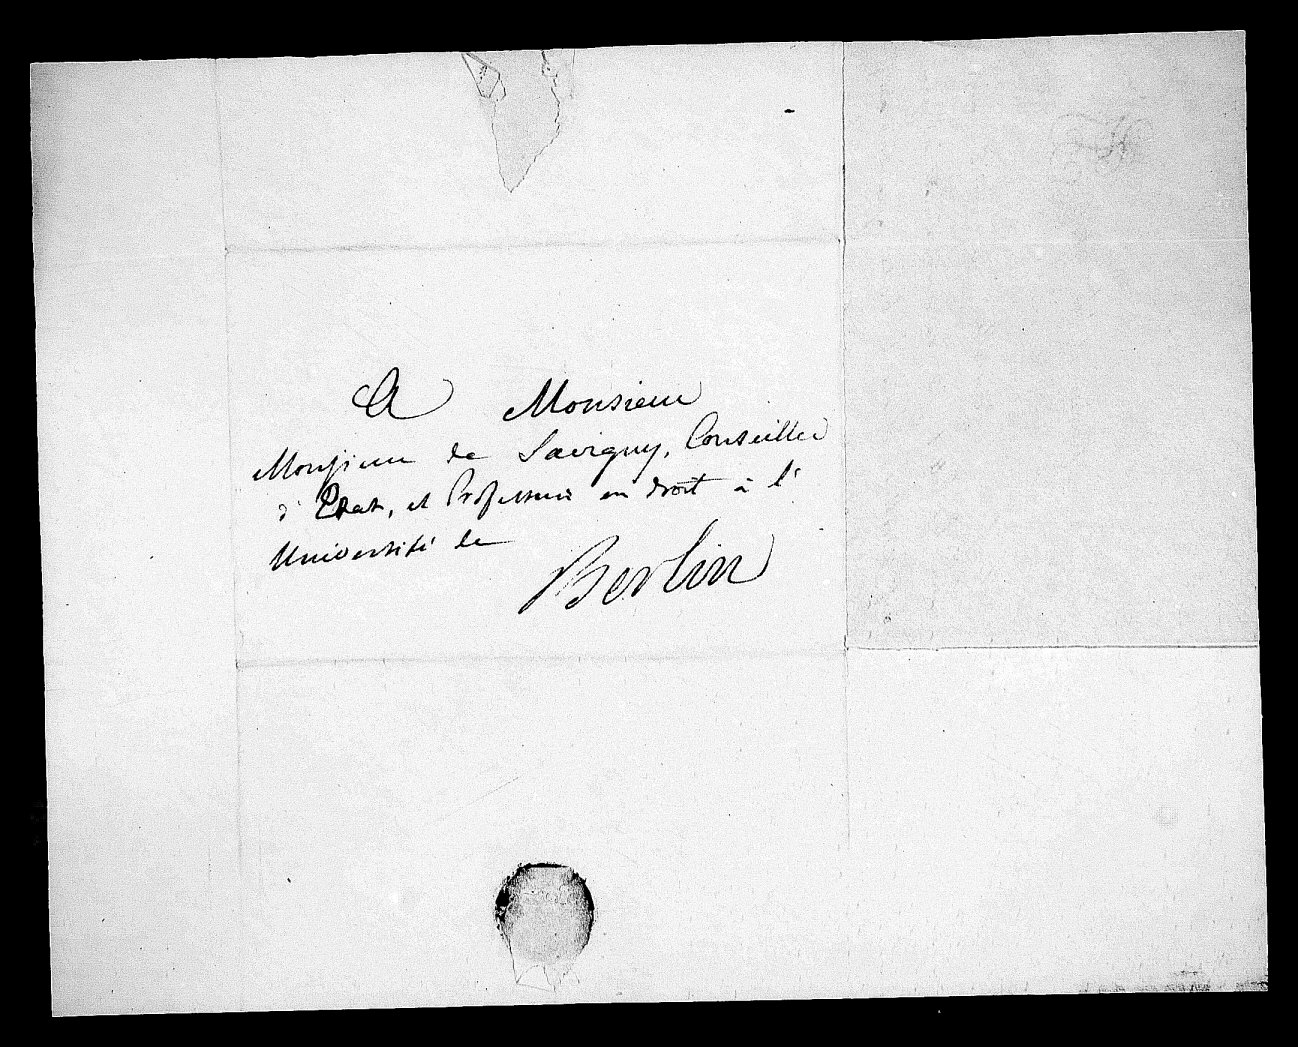 A Monsieur
Monsieur de Savigny, Conseiller
d'Etat, et Professeur en droit à l'
Université de
Berlin